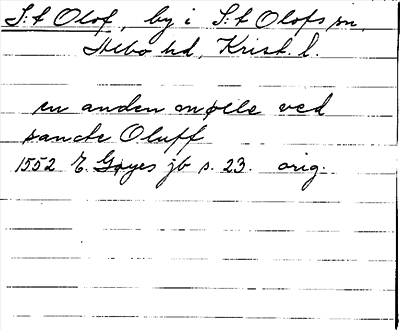 S:t Olof, by i S:t Olofs sn,
Ilebo hd, Krist. l.
en anden mølle ved
sancte Oluff
1552 E. Gøyes jb s. 23. orig.